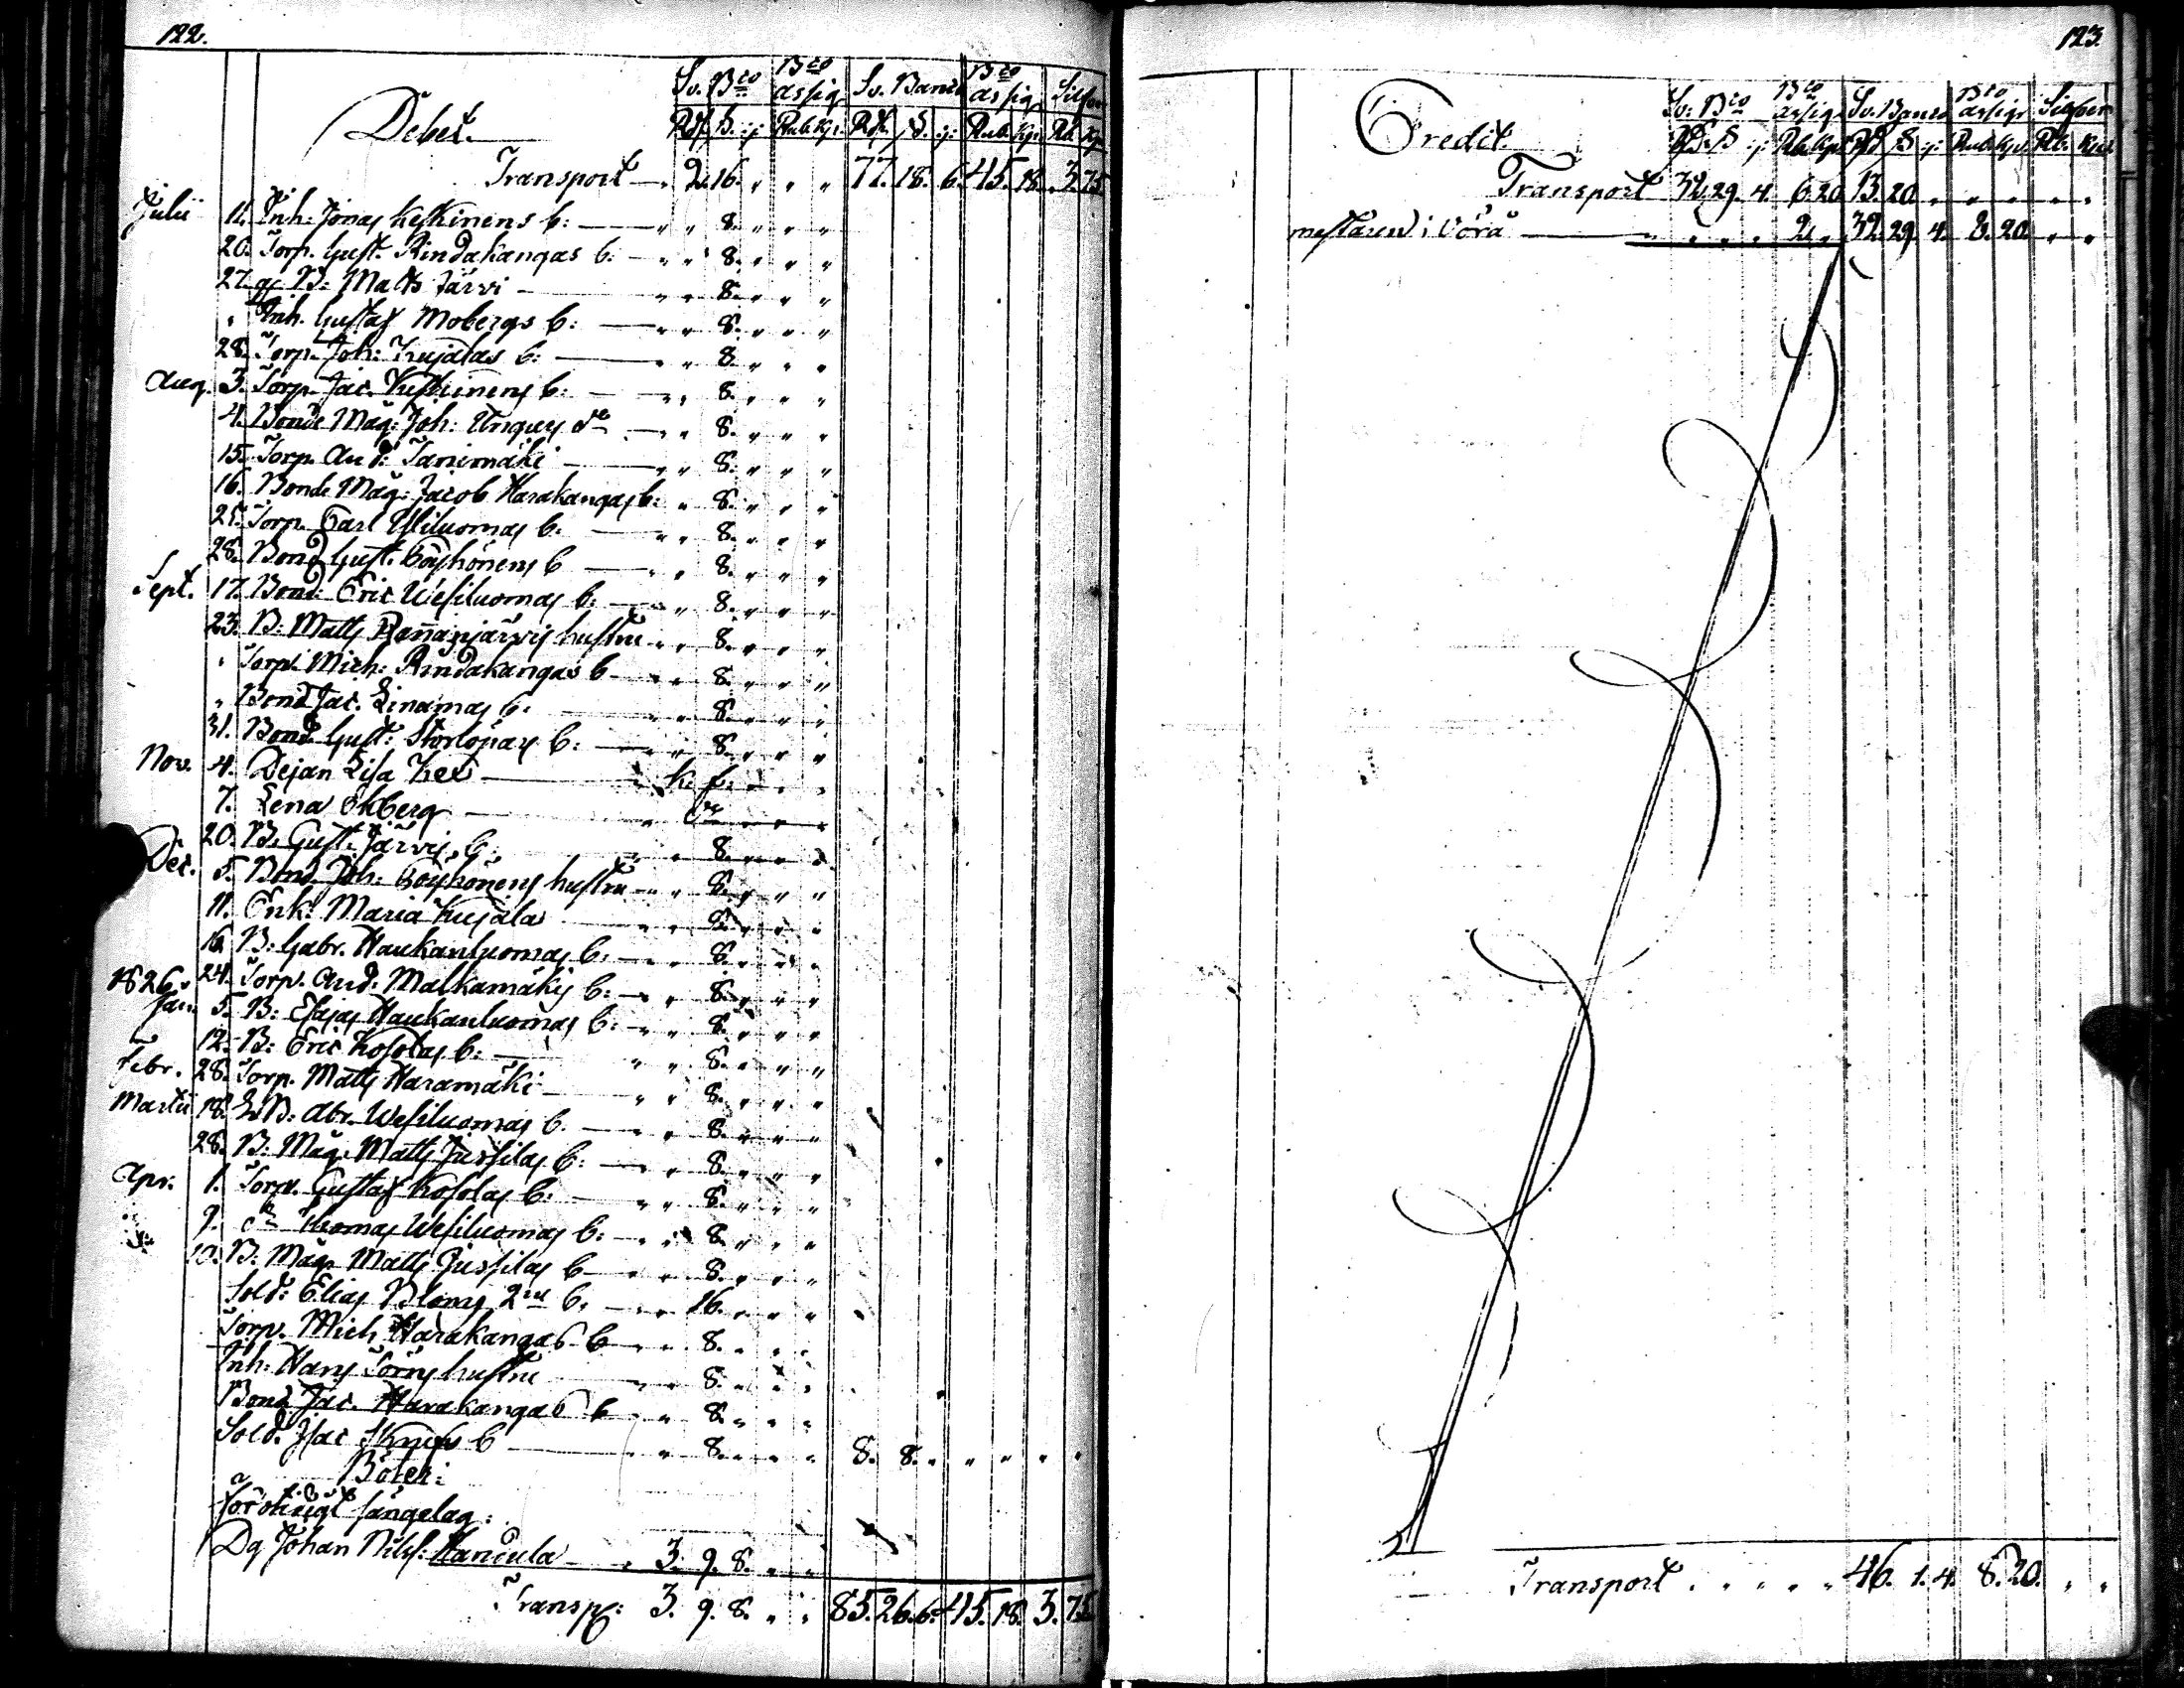 122.
Debet.
Sv. Bco Bco assig. Sv. Banco Bco assig. Silfver
Rdr ß. :j: Rub. kp. Rdr ß. :j: Rub. kp. Rb. kp
Transport 2. 16. " " " 77. 18. 6. 45. 18. 3. 75.
Julii 11. Inh: Jonas Keskinens b: " " 8. " " "
20. Torp. Gust. Rindakangas b: " " 8. " " "
27. gf B: Matts Järvi " " 8. " " "
" Inh. Gustaf Mobergs b: " " 8. " " "
28. Torp. Joh: Kujalas b: " " 8. " " "
Aug. 3. Torp. Jac. b: " " 8. " " "
4. Bonde Måg: Joh: do " " 8. " " "
15. Torp. And: " " 8. " " "
16. Bonde Måg: Jacob Harakangas b: " 8. " " "
25. Torp. Carl Yliluomas b: " " 8. " " "
28. Bond Gust. b " " 8. " " "
Sept. 17. Bond: Eric Wesiluomas b: " " 8. " " "
23. B: Matts hustru " " 8. " " "
" Torp. Mich: Rindakangas b " " 8. " " "
" Bond Jac. Linamas b: " " 8. " " "
31. Bond Gust: b: " " 8. " " "
Nov. 4. Dejan Lisa k. f. " " "
7. Lena Ekberg " do " " "
20. B: Gust: Järvis b: " " 8. " " "
Dec. 5. Bond Joh: hustru " " 8. " " "
11. Enk: Maria Kujala " " 8. " " "
16. B: Gabr. Haukanluomas b: " " 8. " " "
24. Torp. And: Malkamäkis b: " " 8. " " "
1826 Jan. 5. B: Esajas Haukanluomas b: " " 8. " " "
12. B: Eric Kosolas b: " " 8. " " "
Febr. 28. Torp. Matts Haramäki " " 8. " " "
Martii 18. B: Abr. Wesiluomas b. " " 8. " " "
28. B: Måg. Matts Jussilas b: " " 8. " " "
Apr. 1. Torp. Gustaf Kosolas b: " " 8. " " "
9. do Thomas Wesiluomas b: " " 8. " " "
10. B: Måg Matts Jussilas b " " 8. " " "
Sold: Elias Bloms 2ne b. " " 16. " " "
Torp. Mich Harakangas b " " 8. " " "
Inh: Hans hustru " " 8. " " "
Bond Jac. Harakangas b " " 8. " " "
Sold. Isac b " " 8. " " " 8. 8. " " " " "
Böter:
För otidigt sängelag:
Dg Johan Nils: Handula " 3. 9. 8. " "
Transp: 3. 9. 8. " " 85. 26. 6. 45. 18. 3. 75.
123.
Credit.
Sv: Bco Bco assig. Sv. Banco Bco assigr Silfver
Rdr ß :j: Rb kp Rdr ß :j: Rub. kp. Rb. kp
Transport 32. 29. 4. 6. 20 13. 20 " " " " "
mästaren i Vörå " " " " 2. " 32. 29. 4. 8. 20. " "
Transport " " " " " 46. 1. 4. 8. 20. " "